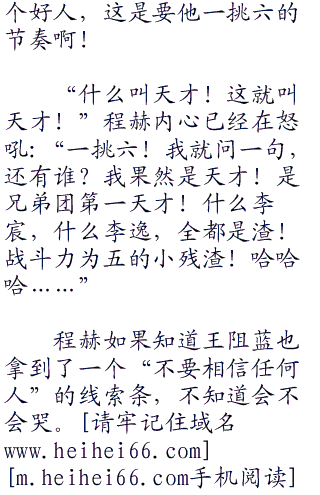 个好人，这是要他一挑六的
节奏啊！
“什么叫天才！这就叫
天才！”程赫内心已经在怒
吼：“一挑六！我就问一句，
还有谁？我果然是天才！是
兄弟团第一天才！什么李
宸，什么李逸，全都是渣！
战斗力为五的小残渣！哈哈
哈……”
程赫如果知道王阻蓝也
拿到了一个“不要相信任何
人”的线索条，不知道会不
会哭。[请牢记住域名
www.heihei66.com]
[m.heihei66.com手机阅读]